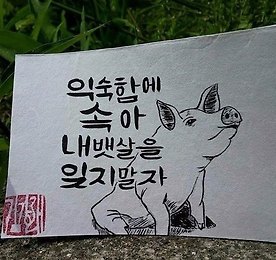 익숙함에
속아
내뱃살을
잊지말자